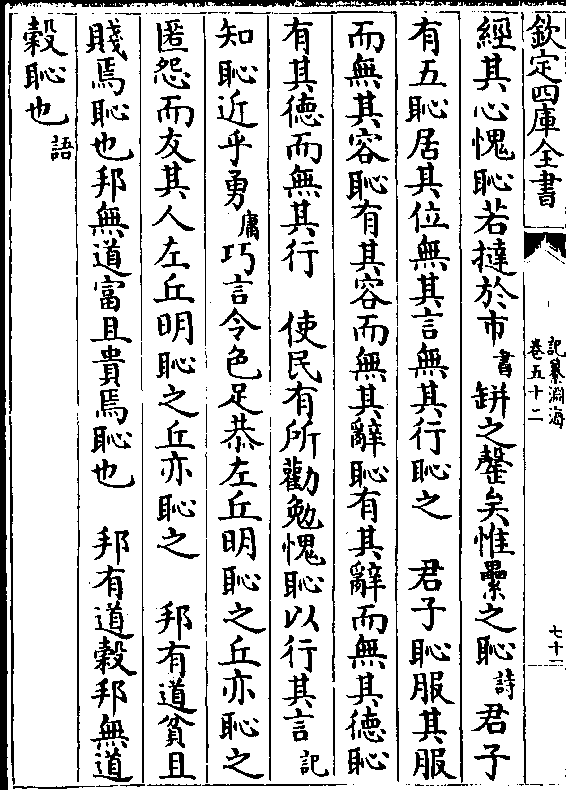 欽定四庫全書
記纂淵海
卷五十二
七十一
經其心愧恥若撻於市書缾之罄矣惟罍之恥詩君子
有五恥居其位無其言無其行恥之　君子恥服其服
而無其容恥有其容而無其辭恥有其辭而無其德恥
有其德而無其行　使民有所勸勉愧恥以行其言記
知恥近乎勇庸巧言令色足恭左丘明恥之丘亦恥之
匿怨而友其人左丘明恥之丘亦恥之　邦有道貧且
賤焉恥也邦無道富且貴焉恥也　邦有道穀邦無道
穀恥也語